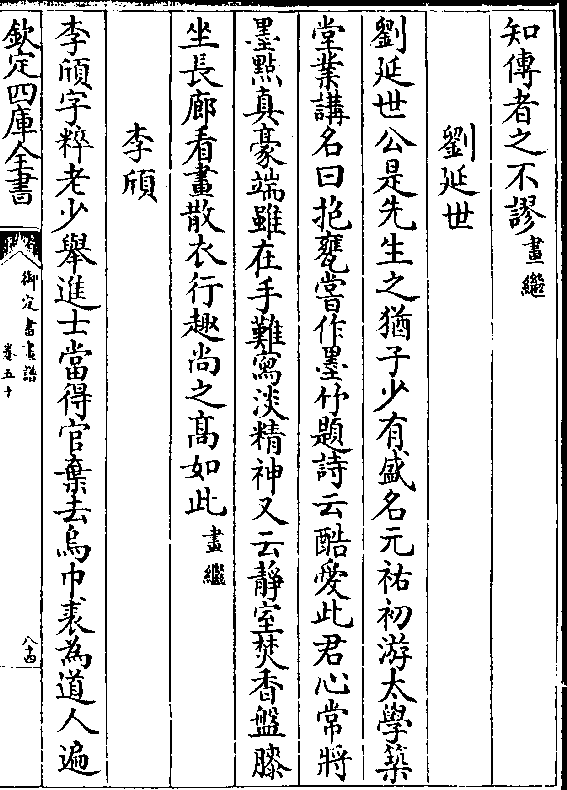 知傳者之不謬畫繼
劉延世
劉延世公是先生之猶子少有盛名元祐初游太學築
堂業講名曰抱甕嘗作墨竹題詩云酷愛此君心常將
墨㸃真豪端雖在手難寫淡精神又云靜室焚香盤膝
坐長廊看畫散衣行趣尚之髙如此畫繼
李頎
李頎字粹老少舉進士當得官棄去烏巾裘為道人遍
欽定四庫全書
御定書畫譜
卷五十
八十四